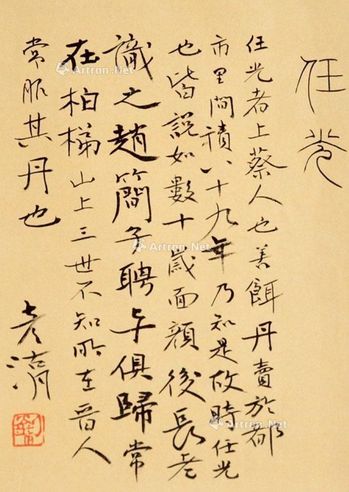 任光
任光者上蔡人也善餌丹賣於都
市里間積八十九年乃知是故時任光
也皆說如數十歲面顏後長老
識之趙簡子聘与俱歸常
在柏梯山上三世不知所在晉人
常服其丹也
老濤
Artron.Net
Artron.Net
Artron.Net